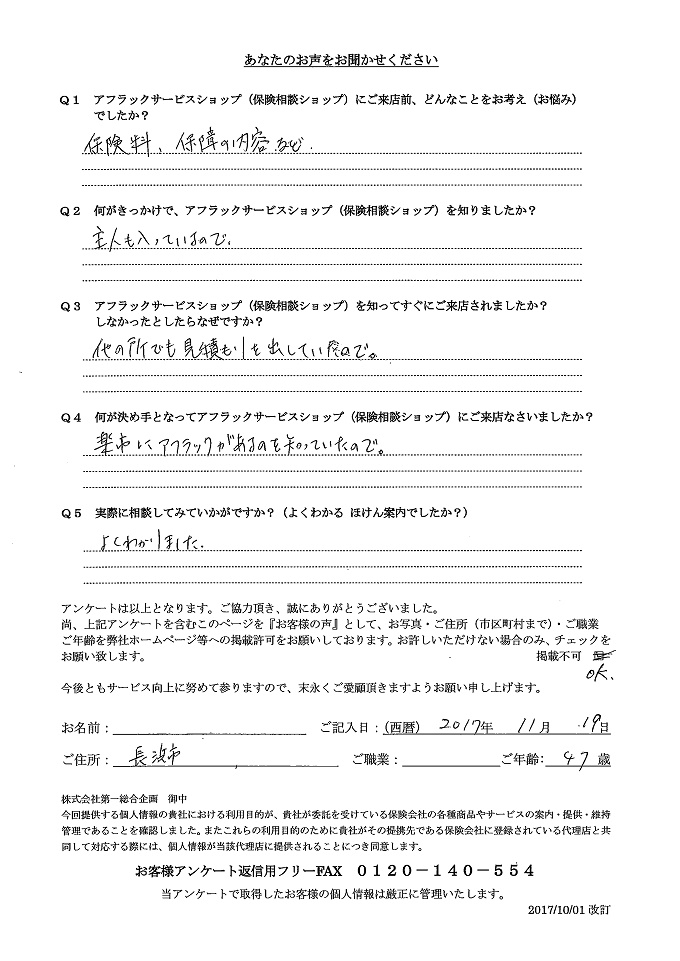 あなたのお声をお聞かせください
Q1 アフラックサービスショップ（保険相談ショップ）にご来店前、どんなことをお考え（お悩み）
でしたか？
保険料、保障の内容など.
Q2 何がきっかけで、アフラックサービスショップ（保険相談ショップ）を知りましたか？
主人も入っているので.
Q3 アフラックサービスショップ（保険相談ショップ）を知ってすぐにご来店されましたか？
しなかったとしたらなぜですか？
他の所でも見積もりを出していたので。
Q4 何が決め手となってアフラックサービスショップ（保険相談ショップ）にご来店なさいましたか？
楽市にアフラックがあるのを知っていたので。
Q5 実際に相談してみていかがですか？（よくわかる ほけん案内でしたか？）
よくわかりました.
アンケートは以上となります。ご協力頂き、誠にありがとうございました。
尚、上記アンケートを含むこのページを『お客様の声』として、お写真・ご住所（市区町村まで）・ご職業
ご年齢を弊社ホームページ等への掲載許可をお願いしております。お許しいただけない場合のみ、チェックを
お願い致します。 掲載不可
OK.
今後ともサービス向上に努めて参りますので、末永くご愛顧頂きますようお願い申し上げます。
お名前： ご記入日：（西暦） 2017年 11月 19日
ご住所： 長浜市 ご職業： ご年齢： 47 歳
株式会社第一総合企画 御中
今回提供する個人情報の貴社における利用目的が、貴社が委託を受けている保険会社の各種商品やサービスの案内・提供・維持
管理であることを確認しました。またこれらの利用目的のために貴社がその提携先である保険会社に登録されている代理店と共
同して対応する際には、個人情報が当該代理店に提供されることにつき同意します。
お客様アンケート返信用フリーFAX 0120－140－554
当アンケートで取得したお客様の個人情報は厳正に管理いたします。
2017/10/01 改訂